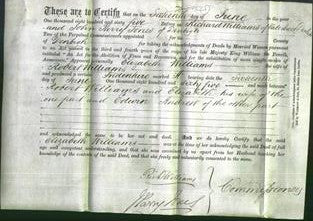 These are to Certify that on the Sixteenth of June in the year
One thousand eight hundred and sixty five before us Richard Williams of
and John Parry Jones of Denbigh
Two of the Perpetual Commissioners appointed
of Denbigh for taking the acknowledgments of Deeds by Married Women pursuant
to an Act passed in the third and fourth years of the reign of His late Majesty King William the Fourth,
intituled "An Act for the Abolition of Fines and Recoveries and for the Substitution of more simple modes of
Assurance," appeared personally Elizabeth Williams wife of
Robert Williams and produced a
certain Indenture bearing date the Sixteenth
June One thousand eight hundred and sixty five and made between
Robert Williams and Elizabeth his wife of the
one part and Edwin of the other part
and acknowledged the same to be her act and deed. And we do hereby Certify that the said
Elizabeth Williams was at the time of her acknowledging the said Deed of full
age and competent understanding, and that she was examined by us apart from her Husband touching her
knowledge of the contents of the said Deed, and that she freely and voluntarily consented to the same.
Rd Williams
J Parry Jones
Commissioners